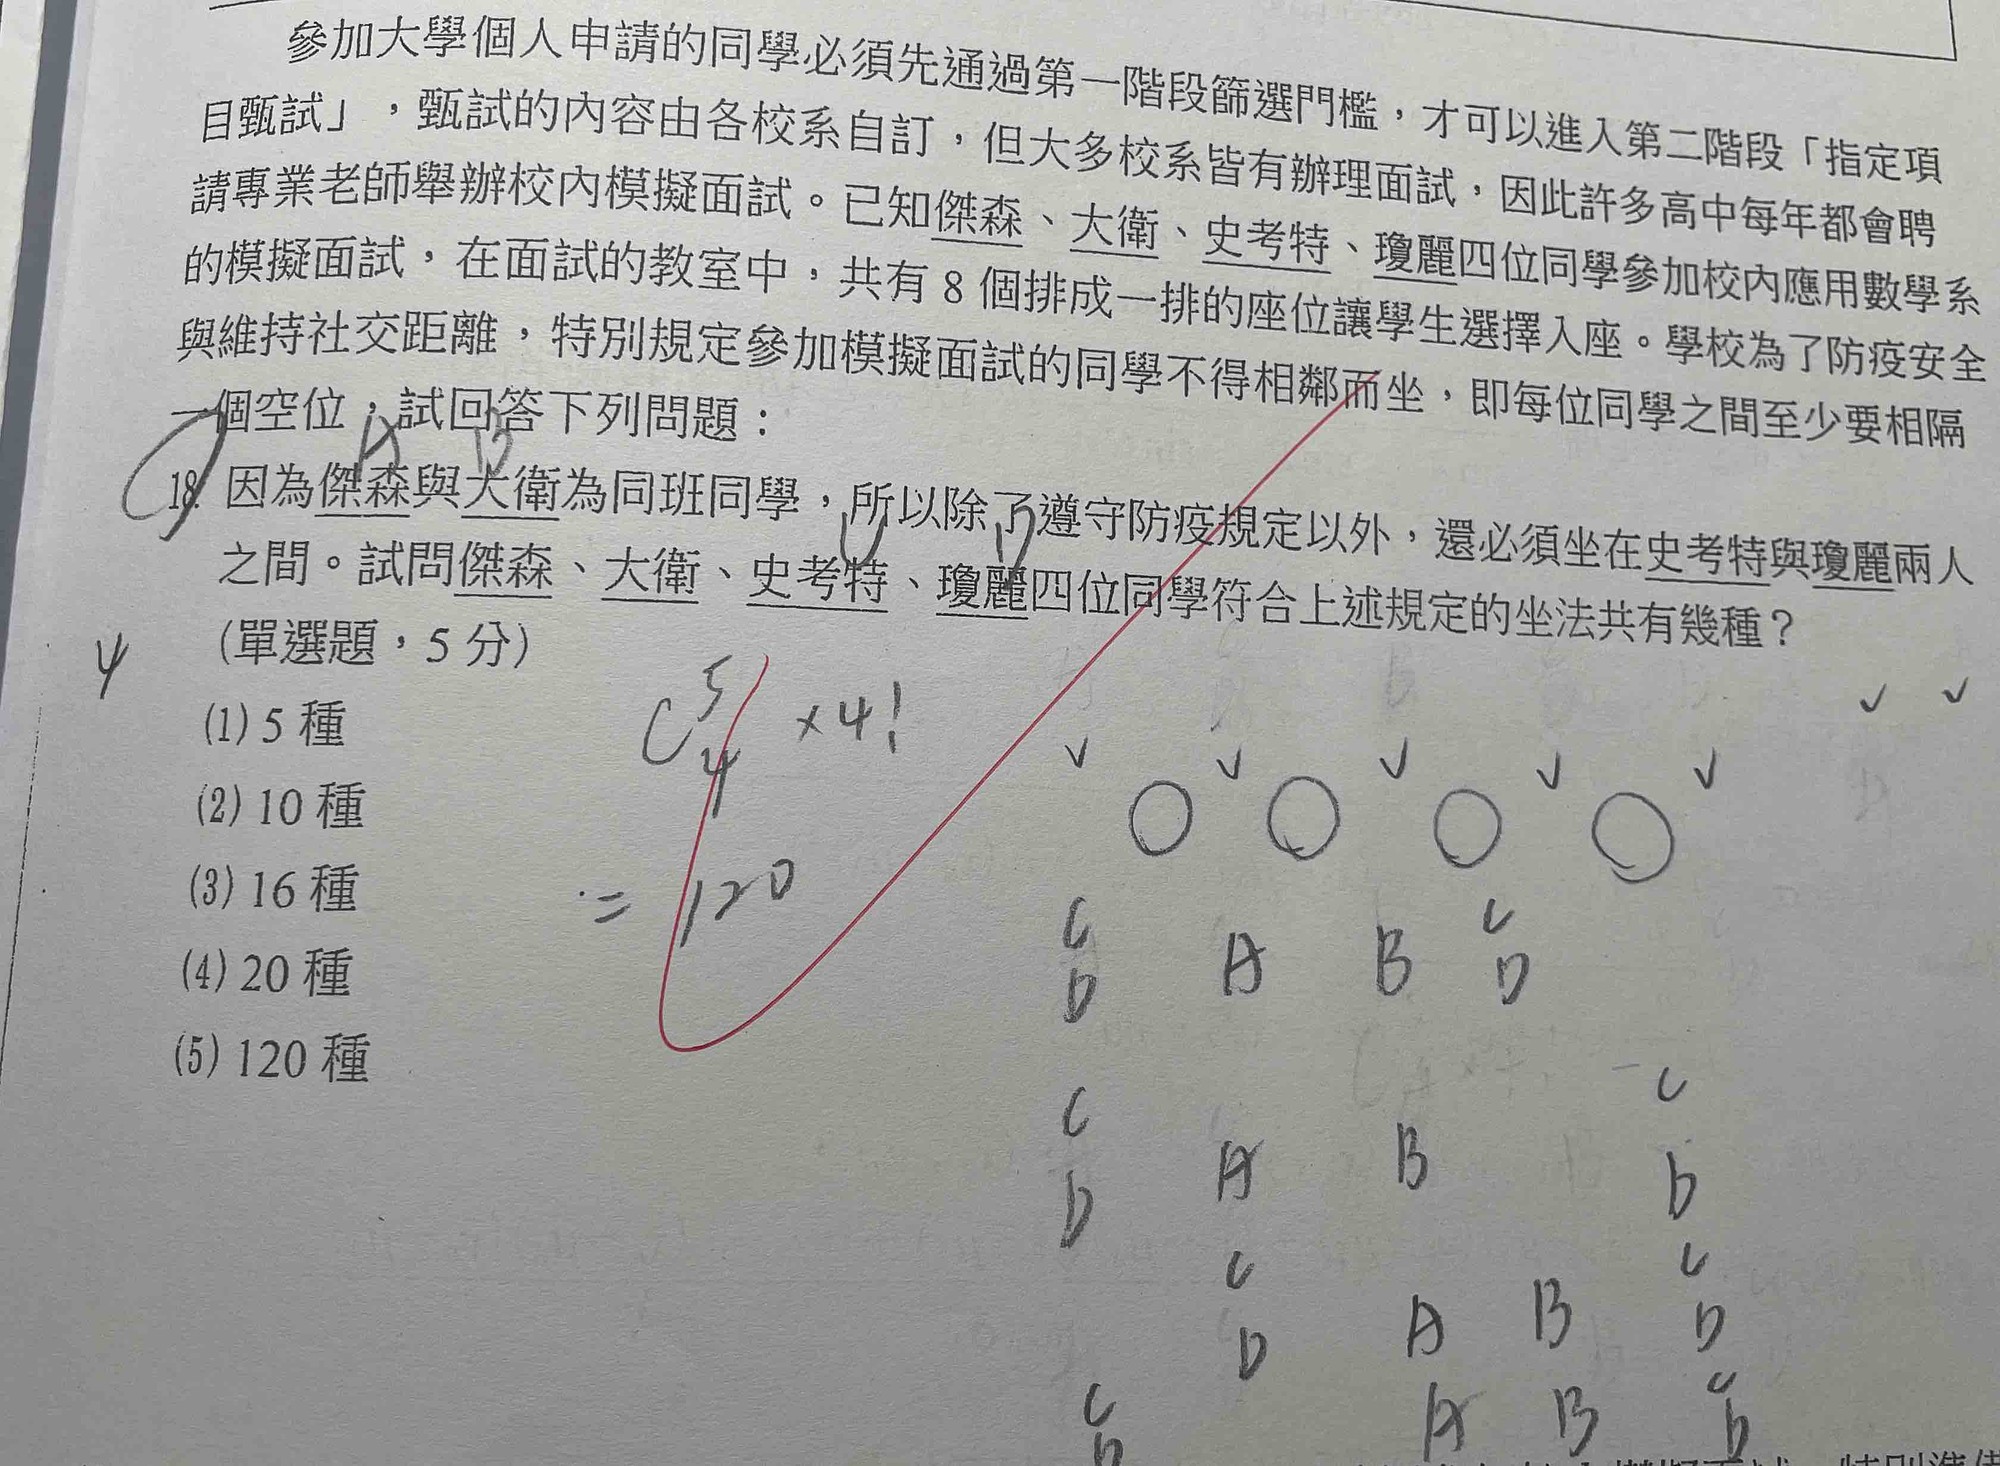 參加大學個人申請的同學必須先通過第一階段篩選門檻，才可以進入第二階段「指定項
目甄試」，甄試的內容由各校系自訂，但大多校系皆有辦理面試，因此許多高中每年都會聘
請專業老師舉辦校內模擬面試。已知傑森、大衛、史考特、瓊麗四位同學參加校內應用數學系
的模擬面試，在面試的教室中，共有 8 個排成一排的座位讓學生選擇入座。學校為了防疫安全
與維持社交距離，特別規定參加模擬面試的同學不得相鄰而坐，即每位同學之間至少要相隔
一個空位，試回答下列問題：
A B
18. 因為傑森與大衛為同班同學，所以除了遵守防疫規定以外，還必須坐在史考特與瓊麗兩人
之間。試問傑森、大衛、史考特、瓊麗四位同學符合上述規定的坐法共有幾種？
(單選題，5 分)
4
(1) 5 種
(2) 10 種
(3) 16 種
(4) 20 種
(5) 120 種
C⁵₄ × 4!
= 120
C A B C
D D
C C
D A B D
C C
D A B D
C A B C
D D